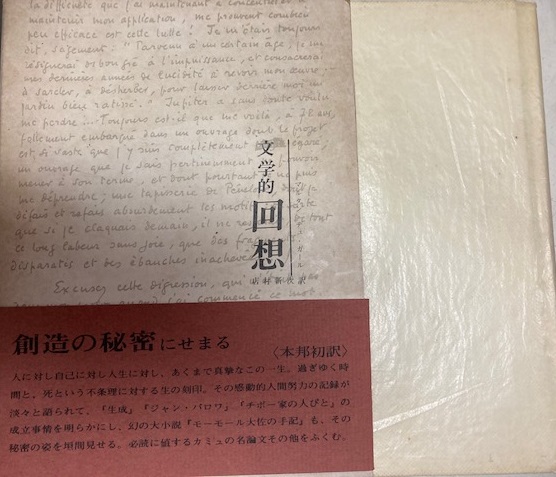 la difficulté que j'ai maintenant à concentrer et
maintenir mon application, me prouvent combien
peu efficace est cette lutte ! Je m'étais toujours
dit, sagement : "Parvenu à un certain âge, je me
résignerai de bon gré à l'impuissance, et consacrerai
mes dernières années de lucidité à revoir mon œuvre
à sarcler, à désherber, pour laisser derrière moi un
jardin bien ratissé." Jupiter a sans doute voulu
me perdre... Toujours est-il que me voilà, à
follement embarqué dans un ouvrage dont le projet
est si vaste que j'y suis complètement égaré,
un ouvrage que je sais pertinemment pouvoir
mener à son terme, et dont pourtant ne puis
me déprendre ; une tapisserie de
défais et refais absurdement les motifs
que si je claquais demain, il ne tout
ce long labeur sans joie, que des
disparates et des ébauches inachevées
Excusez cette digression, qui
j'ai commencé ce mot
文学的
回想
店村新次訳
創造の秘密にせまる
〈本邦初訳〉
人に対し自己に対し人生に対し、あくまで真摯なこの一生。過ぎゆく時
間と、死という不条理に対する生の刻印。その感動的人間努力の記録が
淡々と語られて、『生成』『ジャン・バロワ』『チボー家の人びと』の
成立事情を明らかにし、幻の大小説『モーモール大佐の手記』も、その
秘密の姿を垣間見せる。必読に値するカミュの名論文その他をふくむ。